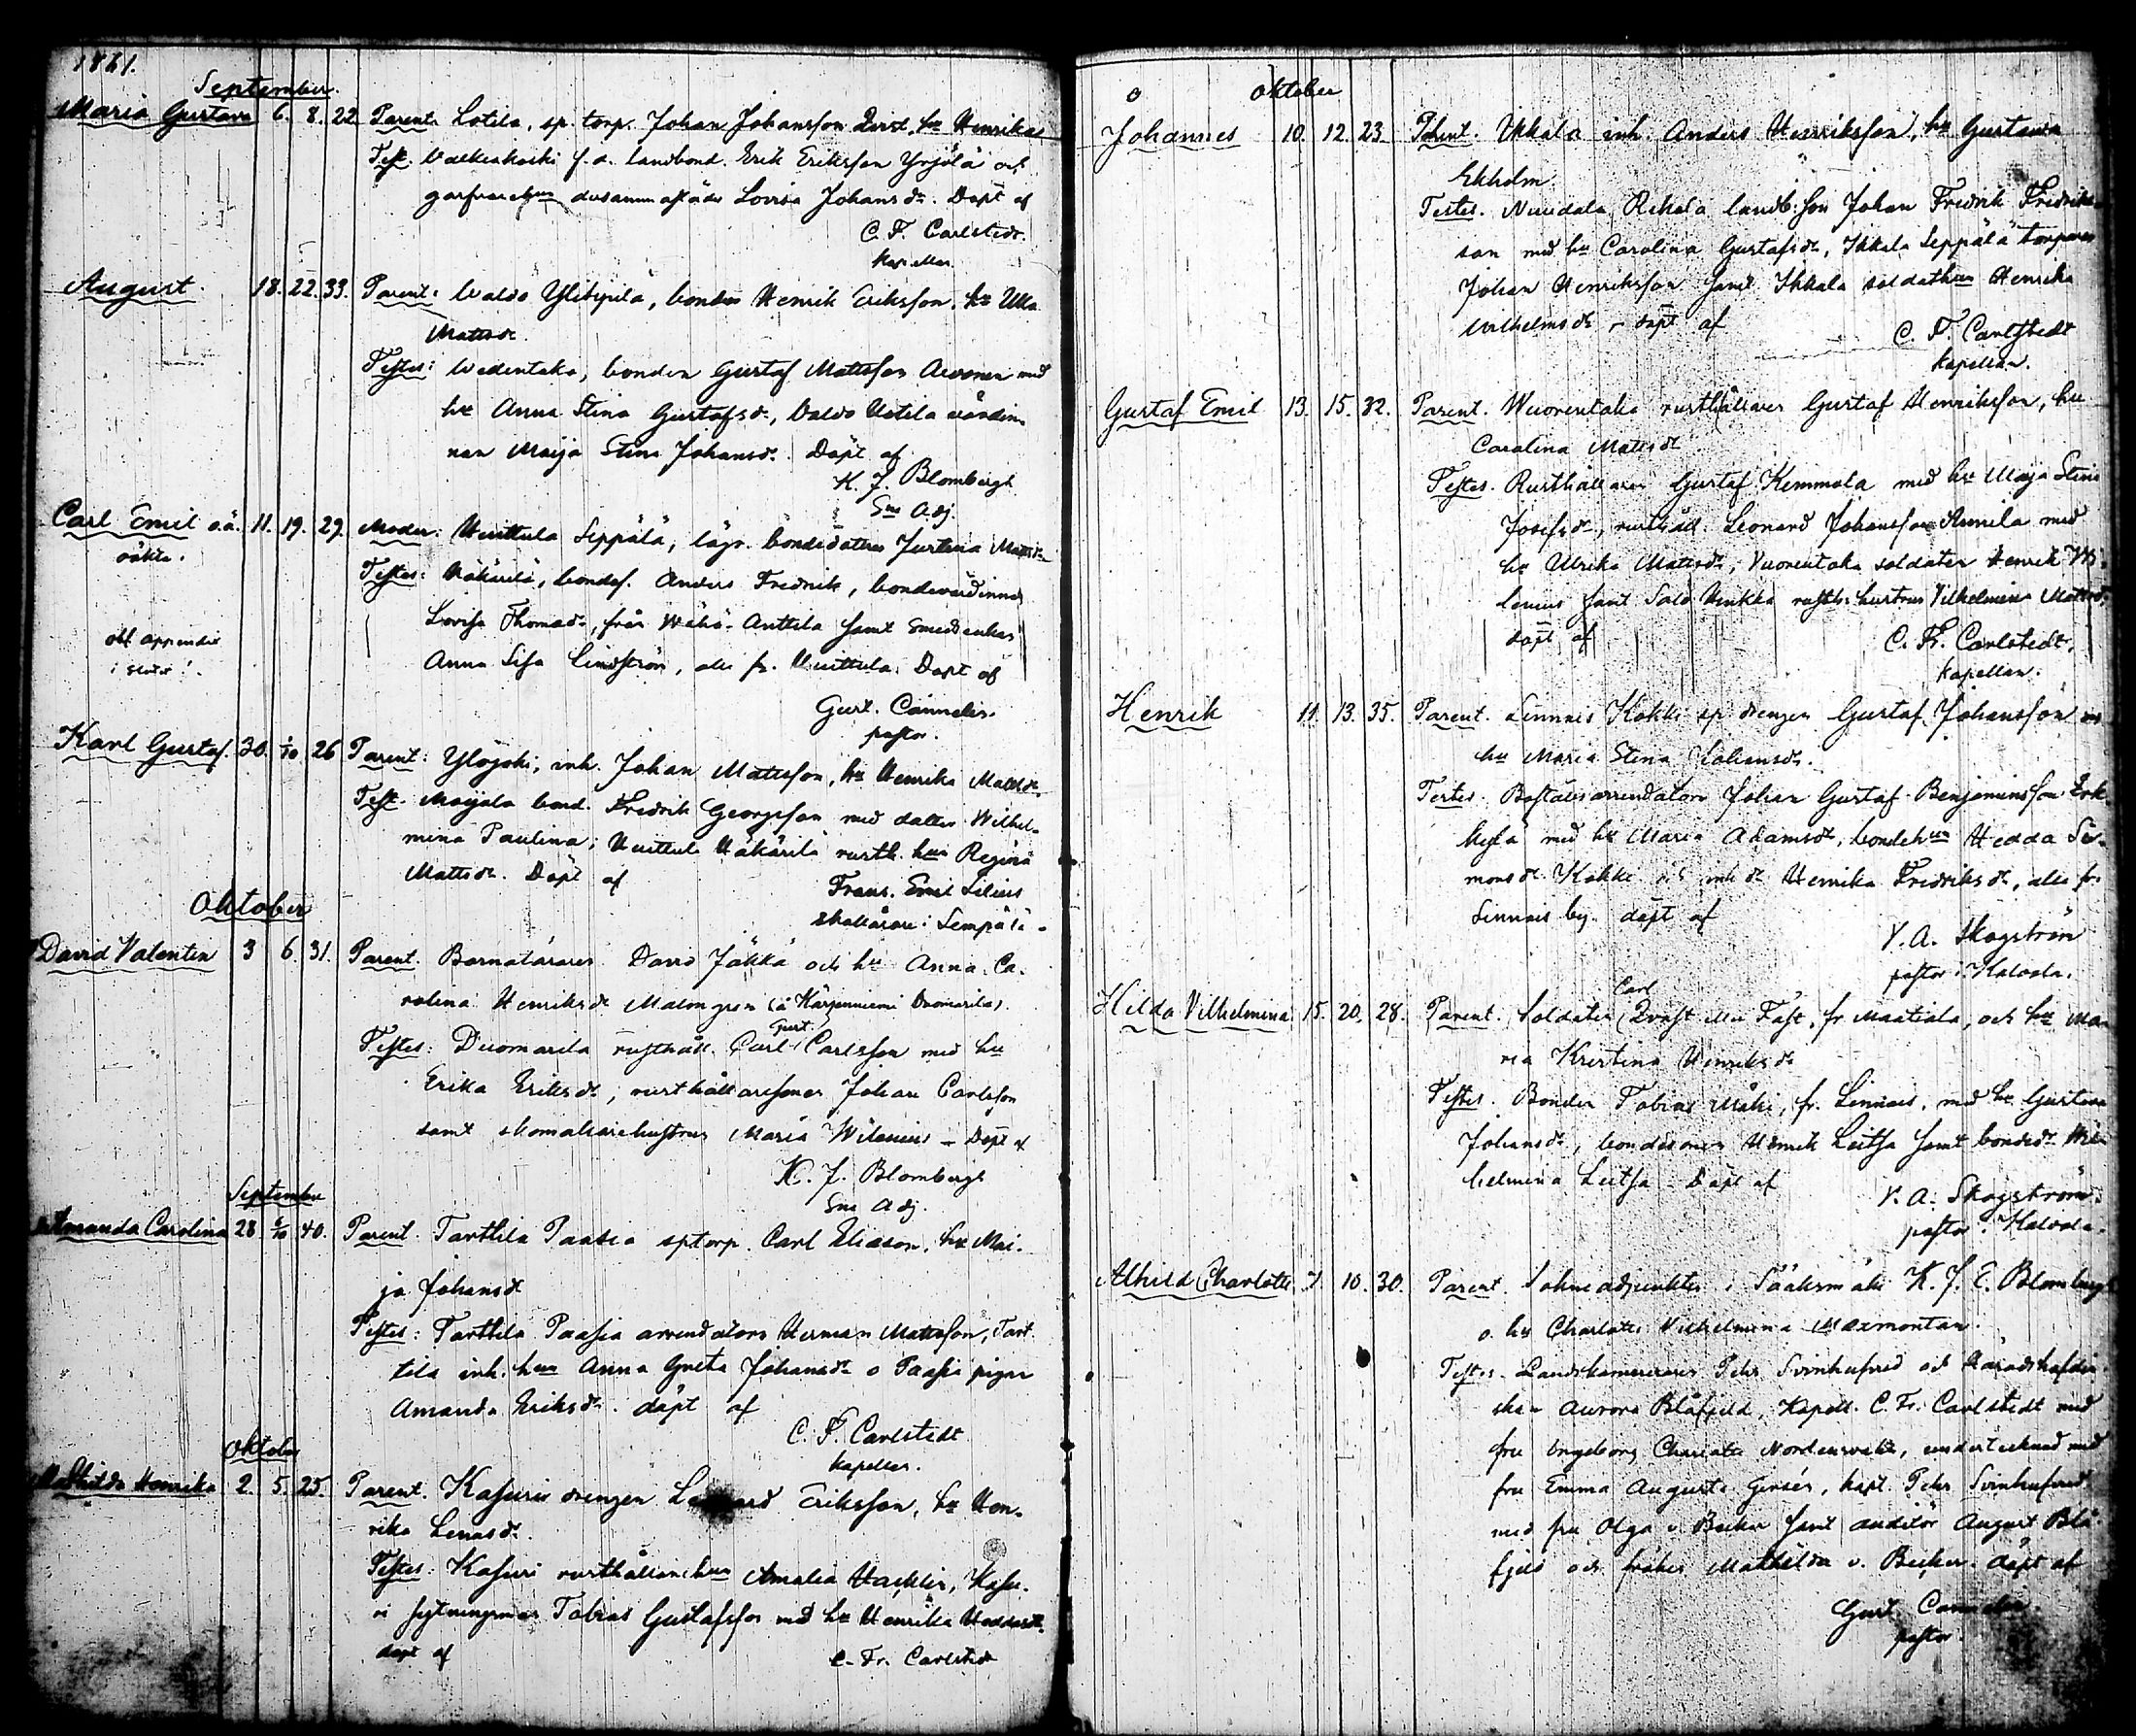 1861.
September.
Maria Gustava 6. 8. 22. Parent. Lotila, sp. torp. Johan Johansson Qvist, hu Henrika
Test. Valkiakoski f.d. landbond. Erik Eriksson Yrjölä och
garfvarehun dersammastädes Lovisa Johansdr. Döpt af
C. F. Carlstedt.
kapellan
August. 18. 22. 33. Parent: Waldo Ylitypilä, bonden Henrik Eriksson, hu Ulla
Mattsdr.
Testes: Wedentaka, bonden Gustaf Mattsson Arvonen med
hu Anna Stina Gustafsdr, Waldo Uotila värdin-
nan Maija Stina Johansdr. Döpt af
K. J. Blombergh
Sne Adj.
Carl Emil o.ä. 11. 19. 29. Moder: Huittula Seppälä, lägr. bondedottren Justina Mattsdr
oäkta.
Testes: Häkärilä, bondes. Anders Fredrik, bondevärdinnan
Lovisa Thomasdr, från Wähä-Anttila samt Smedenkan
obs appendix
i slutet!
Anna Lisa Lindström, alla fr. Huittula. Döpt af
Gust. Cannelin.
pastor.
Karl Gustaf. 30. 1/10 26 Parent: Ylöjoki, inh. Johan Mattsson, hu Henrika Mattsdr.
Test. Maijala bond. Fredrik Georgsson med dotter Wilhel-
mina Paulina; Huittula Häkärilä rusth. hun Regina
Mattsdr. Döpt af
Frans Emil Lilius
skollärare i Lempälä.
Oktober
David Valentin 3 6. 31. Parent. Barnalärarer David Jäkkä och hu Anna Ca-
rolina Henriksdr Malmgren (å Kärjenniemi Duomarila).
Gust.
Testes: Duomarila rusthåll. Carl Carlsson med hu
Erika Eriksdr, rusthållaresonen Johan Carlsson
samt skomakarehustrun Maria Wilenius – Döpt af
K. J. Blombergh
Sne Adj.
September
Amanda Carolina 28 6/10 40. Parent. Tarttila Paasia sptorp. Carl Eliasson, hu Mai-
ja Johansdr
Testes: Tarttila Paasia arrendatorn Herman Mattsson, Tart-
tila inh. hun Anna Greta Johansdr o Paasia pigan
Amanda Eriksdr. döpt af
C. F. Carlstedt
kapellan.
Oktober
Mathilda Henrika 2. 5. 25. Parent. Kasuri drengen Eriksson, hu Hen-
rika Lenasdr.
Testes: Kasuri rusthållarehun Amalia Hacklin, Kasu-
ri sytningsman Tobias Gustafsson med hu Henrika
döpt af
C. Fr. Carlstedt
Oktober
Johannes 10. 12. 23. Parent. Ukkala inh. Anders Henriksson, hu Gustava
Ekholm.
Testes. Rekola landb. son Johan Fredrik Fredriks-
son med hu Carolina Gustafsdr, Ikkala Seppälä torparen
Johan Henriksson samt Ikkala soldathun Henrika
Wilhelmsdr – döpt af
C. F. Carlstedt
kapellan.
Gustaf Emil 13. 15. 32. Parent. Wuorentaka rusthållaren Gustaf Henriksson, hu
Carolina Mattsdr
Testes. Rusthållaren Gustaf Kemmola med hu Maija Stina
Josefsdr, rusthåll. Leonard Johansson Annila med
hu Ulrika Mattsdr, Vuorentaka soldaten Henrik Wi-
lenius samt Salo Uinkka rusth. hustrun Vilhelmina Mattsdr,
döpt af
C. Fr. Carlstedt,
kapellan.
Henrik 11. 13. 35. Parent. Linnais Kokki sp. drengen Gustaf Johansson
hu Maria Stina Johansdr.
Testes. Boställsarrendatorn Johan Gustaf Benjaminsson
med hu Maria Adamsdr, bondehun Hedda Si-
monsdr Kokki och inh. dr Henrika Fredriksdr, alla fr.
Linnais by. döpt af
V. A. Skogström
pastor i Kalvola.
Carl
Hilda Vilhelmina. 15. 20. 28. Parent. Soldaten Qvast eller Fast, fr Maatiala, och hu Ma-
ria Kristina Henriksdr
Testes. Bonden Tobias Mäki, fr. Linnais, med hu Gustava
Johansdr, bondesonen Henrik Leitsa samt bondedr Wil-
helmina Leitsa. Döpt af
V. A. Skogström.
pastor i Kalvola.
Alhild Charlotta 7. 10. 30. Parent. Sokneadjunkten i Sääksmäki K. J. E. Blombergh
o. hu Charlotta Vilhelmina Maxmontan.
Testes. Landskamereraren Pehr Svinhufvud och Häradshöfdin-
skan Aurora Blåfjeld, Kapell. C. Fr. Carlstedt med
fru Ingeborg Charlotta Nordenswan, undertecknad med
fru Emma Augusta, kapt. Pehr Svinhufvud
med fru Olga v. Becker samt auditör August Blå-
fjeld och fröken Mathilda v. Becker. döpt af
Gust. Cannelin.
pastor.